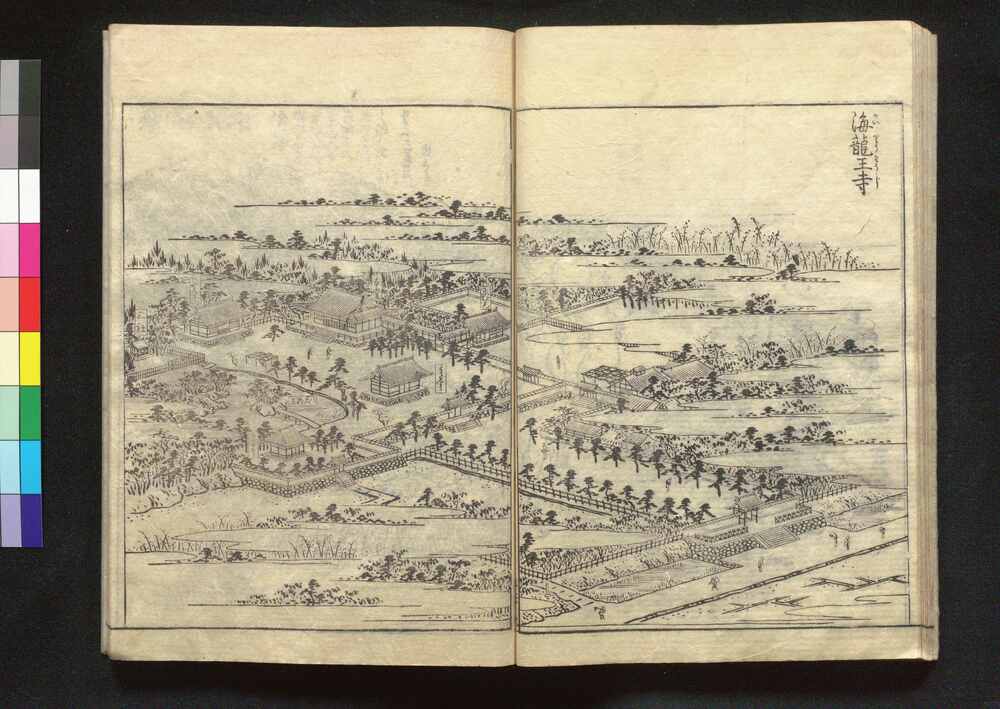 海龍王寺